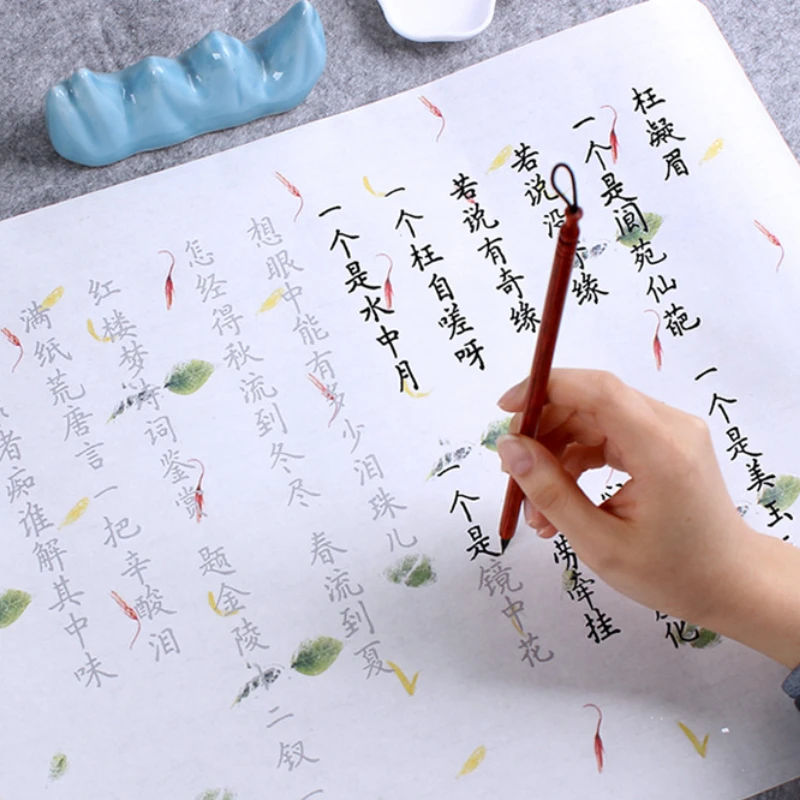 枉凝眉
一个是阆苑仙葩
一个是美玉
若说没
缘
若说有奇缘
化
一个枉自嗟呀
劳牵挂
一个是水中月
一个是镜中花
想眼中能有多少泪珠儿
怎经得秋流到冬尽
春流到夏
红楼梦诗词鉴赏
题金陵十二钗
一
满纸荒唐言一把辛酸泪
者痴谁解其中味